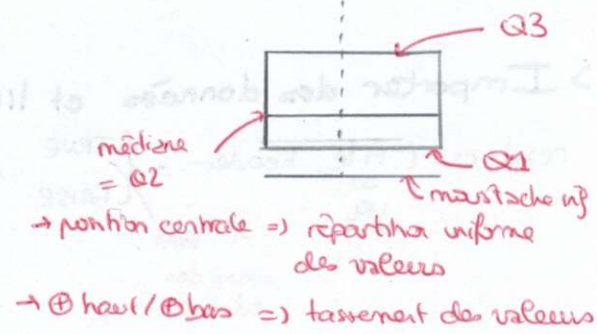 Q3
médiane
= Q2
Q1
moustache inf
→ position centrale => répartition uniforme
des valeurs
→ ⊕ haut / ⊕ bas => tassement des valeurs